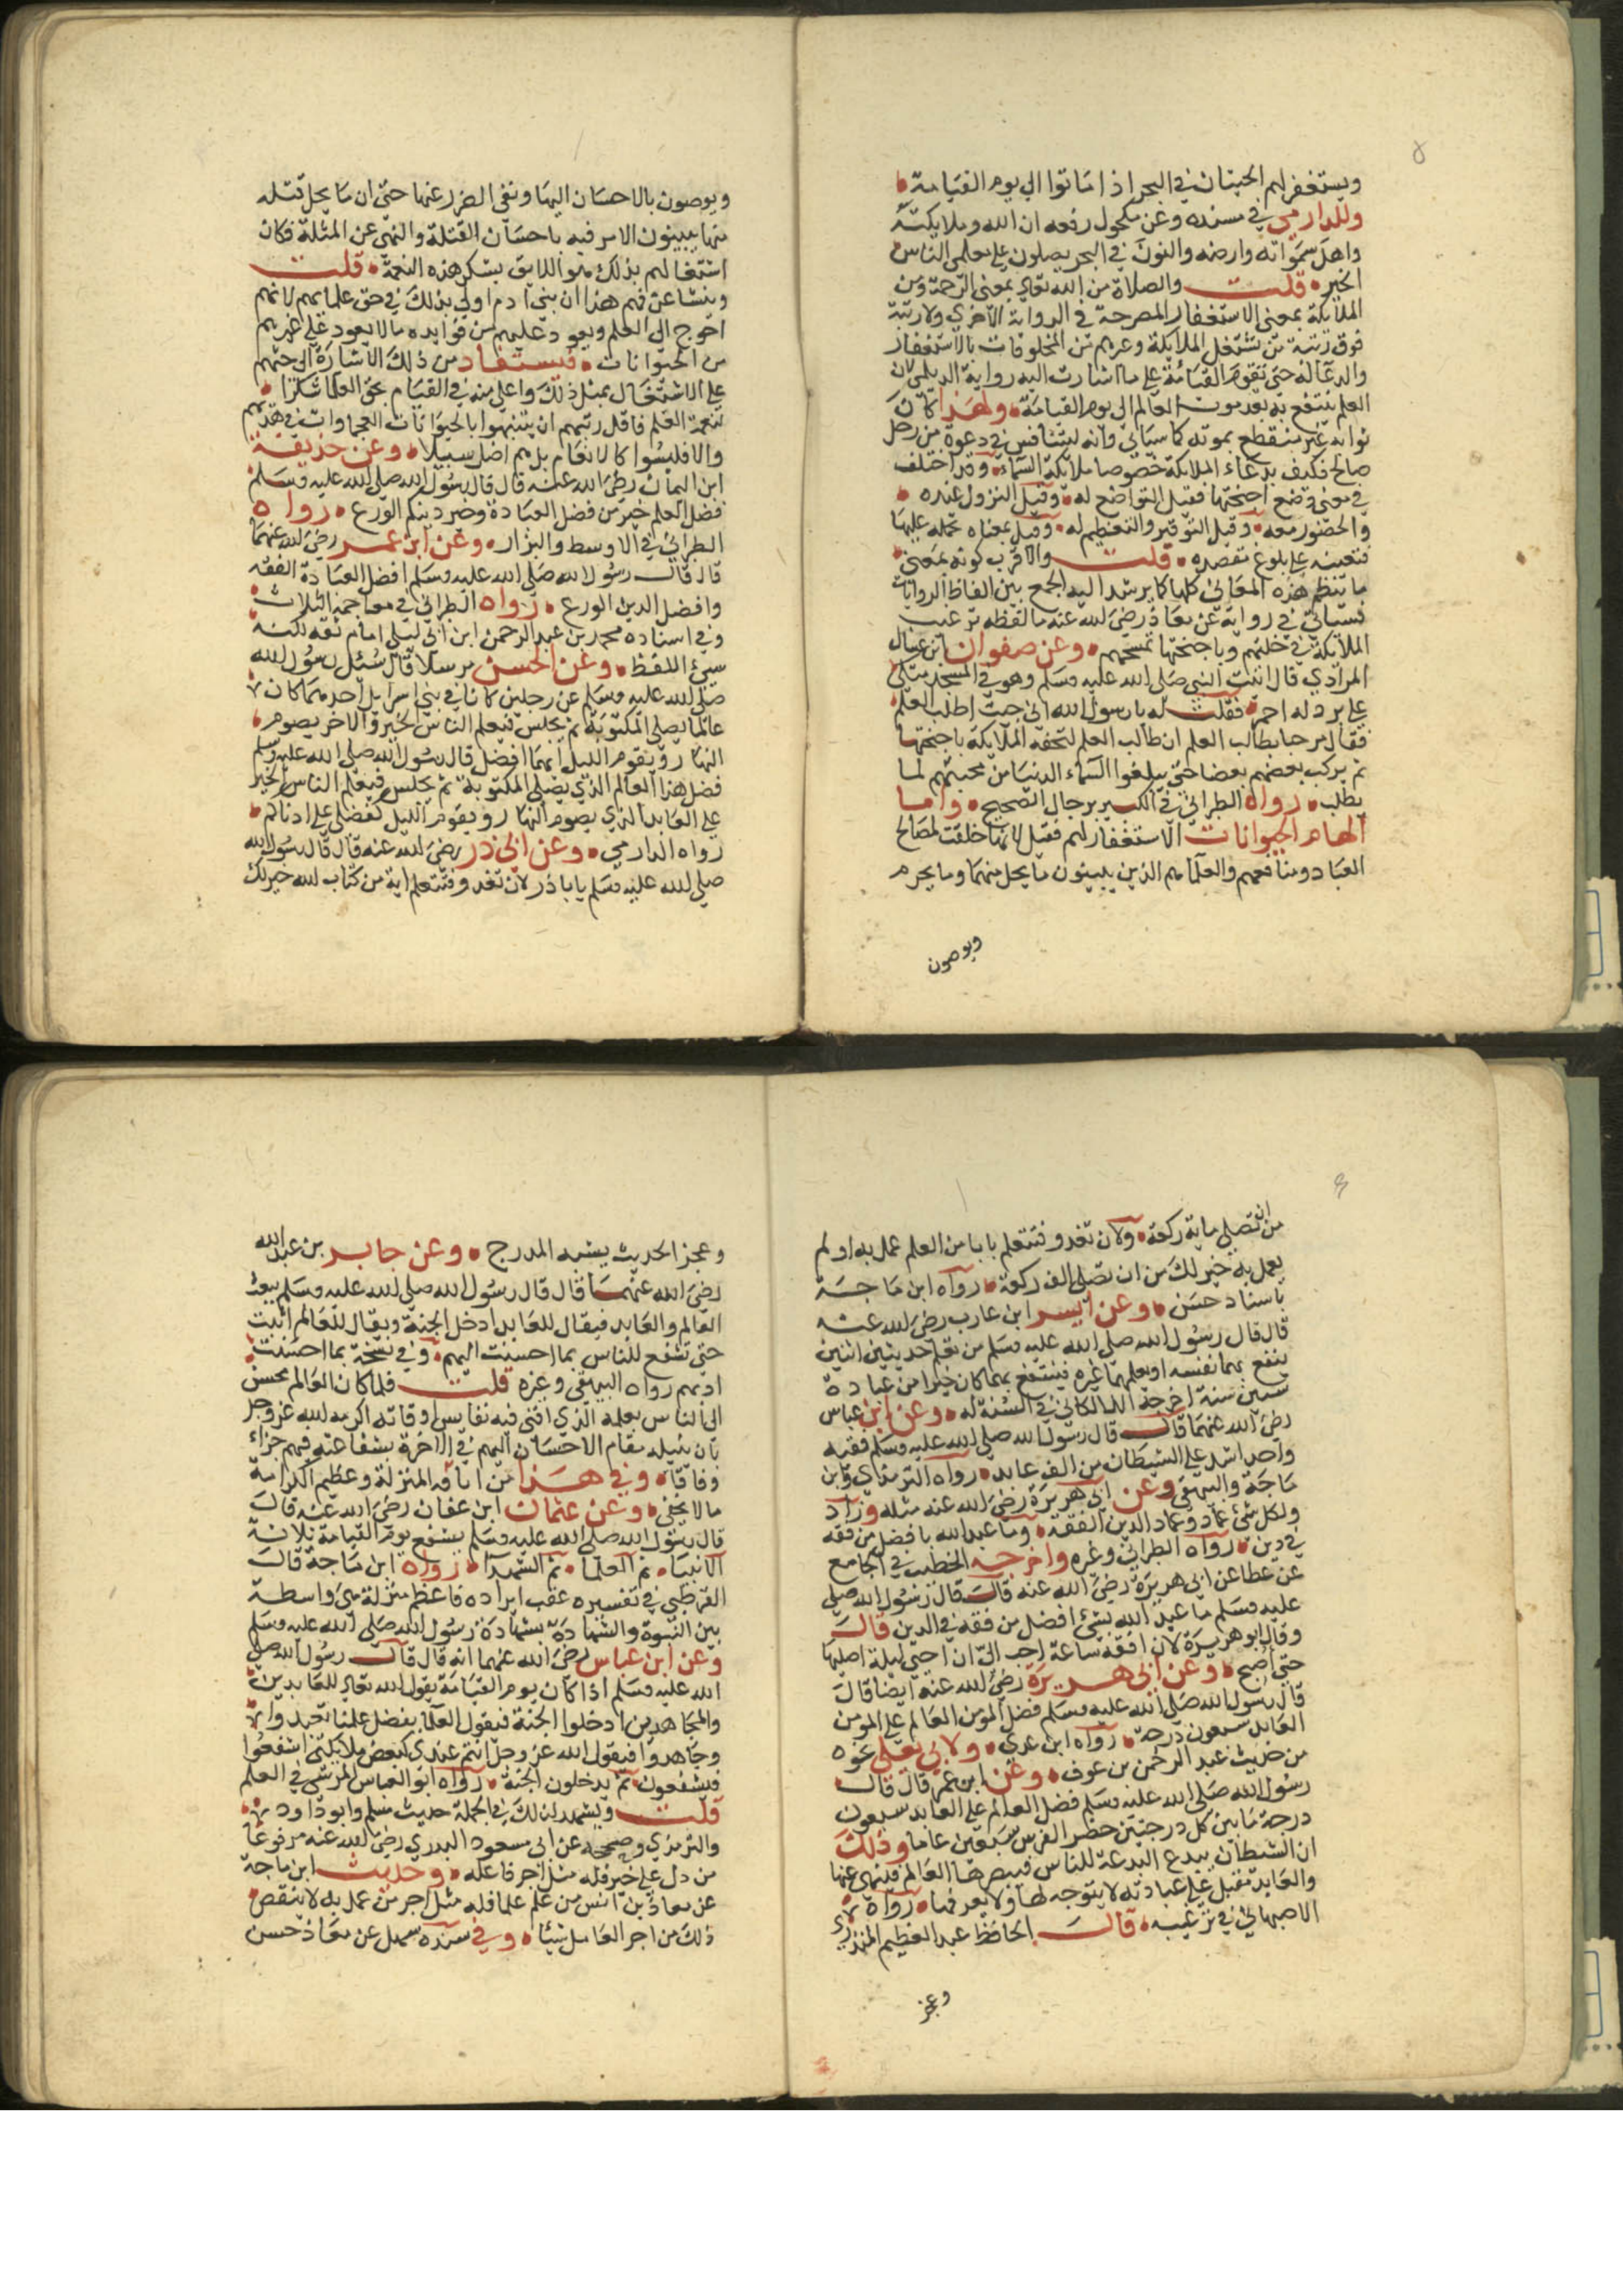 ويستغفر لهم الحيتان في البحر اذا ماتوا الي يوم القيامة
وللدارمي في مسنده وعن مكحول رفعه ان الله وملايكته
واهل سمواته وارضه والنون في البحر يصلون على معلمي الناس
الخير قلت والصلاة من الله تعالي بمعنى الرحمة ومن
الملايكة بمعنى الاستغفار المصرحة في الرواية الاخري ولا رتبة
فوق رتبة من تشتغل الملايكة وغيرهم من المخلوقات بالاستغفار
والدعا له حتى تقوم القيامة على ما اشارت اليه رواية الديلمي لان
العلم ينتفع به بعد موت العالم الى يوم القيامة ولهذا كان
ثوابه غير منقطع بموته كما سياتي وانه ليتنافس في دعوة من رجل
صالح فكيف بدعاء الملايكة خصوصا ملايكة السماء وقد اختلف
في معنى وضع اجنحتها فقيل التواضع له وقيل النزول عنده
والحضور معه وقيل التوقير والتعظيم له وقيل معناه تحمله عليها
فتعينه على بلوغ مقصده قلت والاقرب كونه بمعنى
ما ينتظم هذه المعاني كلها كما يرشد اليه الجمع بين الفاظ الروايات
فسياتي في رواية عن معاذ رضي الله عنه ما لفظه ترغب
الملايكة في خلتهم وباجنحتها تمسحهم وعن صفوان بن عسال
المرادي قال اتيت النبي صلى الله عليه وسلم وهو في المسجد متكي
على برد له احمر فقلت له يا رسول الله اني جئت اطلب العلم
فقال مرحبا بطالب العلم ان طالب العلم لتحفه الملايكة باجنحتها
ثم يركب بعضهم بعضا حتى يبلغوا السماء الدنيا من محبتهم لما
يطلب رواه الطبراني في الكبير برجال الصحيح واما
الهام الحيوانات الاستغفار لهم فقيل لانها خلقت لمصالح
العباد ومنافعهم والعلما هم الذين يبينون ما يحل منها وما يحرم
ويوصون
ويوصون بالاحسان اليها ونفي الضرر عنها حتى ان ما يحل قتله
منها يبينون الامر فيه باحسان القتلة والنهي عن المثلة فكان
اشتغالهم بذلك هو اللايق بشكر هذه النعمة قلت
وينشا عن فهم هذا ان بني ادم اولي بذلك في حق علمايهم لانهم
احوج الى العلم ويعود عليهم من فوايده ما لا يعود على غيرهم
من الحيوانات فيستفاد من ذلك الاشارة الى حثهم
على الاشتغال بمثل ذلك واعلى منه في القيام بحق العلما شكرا
لنعمة العلم فاقل رتبهم ان يتنبهوا بالحيوانات العجماوات في هديهم
والا فليسوا كالانعام بل هم اضل سبيلا وعن حذيفة
ابن اليمان رضي الله عنه قال قال رسول الله صلى الله عليه وسلم
فضل العلم خير من فضل العبادة وخير دينكم الورع رواه
الطبراني في الاوسط والبزار وعن ابن عمر رضي الله عنهما
قال قال رسول الله صلى الله عليه وسلم افضل العبادة الفقه
وافضل الدين الورع رواه الطبراني في معاجمه الثلاث
وفي اسناده محمد بن عبد الرحمن ابن ابي ليلى امام ثقه لكنه
سيئ اللفظ وعن الحسن مرسلا قال سئل رسول الله
صلى الله عليه وسلم عن رجلين كانا في بني اسرايل احدهما كان
عالما يصلي المكتوبة ثم يجلس فيعلم الناس الخير والاخر يصوم
النهار ويقوم الليل ايهما افضل قال رسول الله صلى الله عليه وسلم
فضل هذا العالم الذي يصلي المكتوبة ثم يجلس فيعلم الناس الخير
على العابد الذي يصوم النهار ويقوم الليل كفضلي على ادناكم
رواه الدارمي وعن ابي ذر رضي الله عنه قال قال رسول الله
صلى الله عليه وسلم يا با ذر لان تغدو فتتعلم اية من كتاب الله خير لك
من ان تصلي ماية ركعة ولان تغدو فتتعلم بابا من العلم عمل به او لم
يعمل به خير لك من ان تصلي الف ركعة رواه ابن ماجة
باسناد حسن وعن ابن عازب رضي الله عنه
قال قال رسول الله صلى الله عليه وسلم من تعلم حديثين اثنين
ينفع بهما نفسه او يعلمهما غيره فينتفع بهما كان خيرا من عبادة
ستين سنة اخرجه اللالكائي في السنة له وعن ابن عباس
رضي الله عنهما قال قال رسول الله صلى الله عليه وسلم فقيه
واحد اشد على الشيطان من الف عابد رواه الترمذي وابن
ماجة والبيهقي وعن ابي هريرة رضي الله عنه مثله وزاد
ولكل شئ عماد وعماد الدين الفقه وما عبد الله بافضل من فقه
في دين رواه الطبراني وغيره واخرجه الخطيب في الجامع
عن عطا عن ابي هريرة رضي الله عنه قال قال رسول الله صلى
عليه وسلم ما عبد الله بشئ افضل من فقه في الدين قال
وقال ابو هريرة لان افقه ساعة احب الي ان احيي ليلة اصليها
حتى اصبح وعن ابي هريرة رضي الله عنه ايضا قال
قال رسول الله صلى الله عليه وسلم فضل المومن العالم على المومن
العابد سبعون درجة رواه ابن عدي ولابي يعلى نحوه
من حديث عبد الرحمن بن عوف وعن ابن عمر قال قال
رسول الله صلى الله عليه وسلم فضل العالم على العابد سبعون
درجة ما بين كل درجتين حضر الفرس سبعين عاما وذلك
ان الشيطان يبدع البدعة للناس فيبصرها العالم فينهى عنها
والعابد مقبل على عبادته لا يتوجه لها ولا يعرفها رواه
الاصبهاني في ترغيبه قال الحافظ عبد العظيم المنذري
وعجز
وعجز الحديث يشبه المدرج وعن جابر بن عبد الله
رضي الله عنهما قال قال رسول الله صلى الله عليه وسلم يبعث
العالم والعابد فيقال للعابد ادخل الجنة ويقال للعالم اثبت
حتى تشفع للناس بما احسنت اليهم وفي نسخة بما احسنت
ادبهم رواه البيهقي وغيره قلت فلما كان العالم محسن
الى الناس بعلمه الذي افنى فيه نفايس اوقاته اكرمه الله عز وجل
بان ينيله مقام الاحسان اليهم في الاخرة بشفاعته فيهم جزاء
وفاقا وفي هذا من انافة المنزلة وعظيم الكرامة
ما لا يخفى وعن عثمان ابن عفان رضي الله عنه قال
قال رسول الله صلى الله عليه وسلم يشفع يوم القيامة ثلاثة
الانبيا ثم العلما ثم الشهدا رواه ابن ماجة قال
القرطبي في تفسيره عقب ايراده فاعظم منزلة هي واسطة
بين النبوة والشهادة بشهادة رسول الله صلى الله عليه وسلم
وعن ابن عباس رضي الله عنهما انه قال قال رسول الله صلى
الله عليه وسلم اذا كان يوم القيامة يقول الله تعالي للعابدين
والمجاهدين ادخلوا الجنة فيقول العلما بفضل علمنا تعبدوا
وجاهدوا فيقول الله عز وجل انتم عندي كبعض ملايكتي اشفعوا
فيشفعون ثم يدخلون الجنة رواه ابو العباس المرهبي في العلم
قلت ويشهد لذلك في الجملة حديث مسلم وابو داود
والترمذي وصححه عن ابي مسعود البدري رضي الله عنه مرفوعا
من دل على خير فله مثل اجر فاعله وحديث ابن ماجة
عن معاذ بن انس من علم علما فله مثل اجر من عمل به لا ينقص
ذلك من اجر العامل شيئا وفي سنده سهل عن معاذ حسن